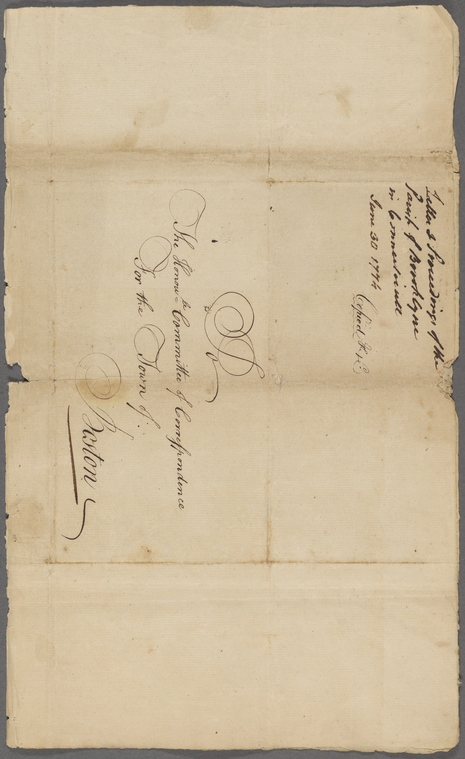 Letter & Proceedings of the
Parish of Brooklyne
in Connecticutt
June 30 1774
Copied
To
The Honou^ble Committee of Correspondence
For the Town of
Boston